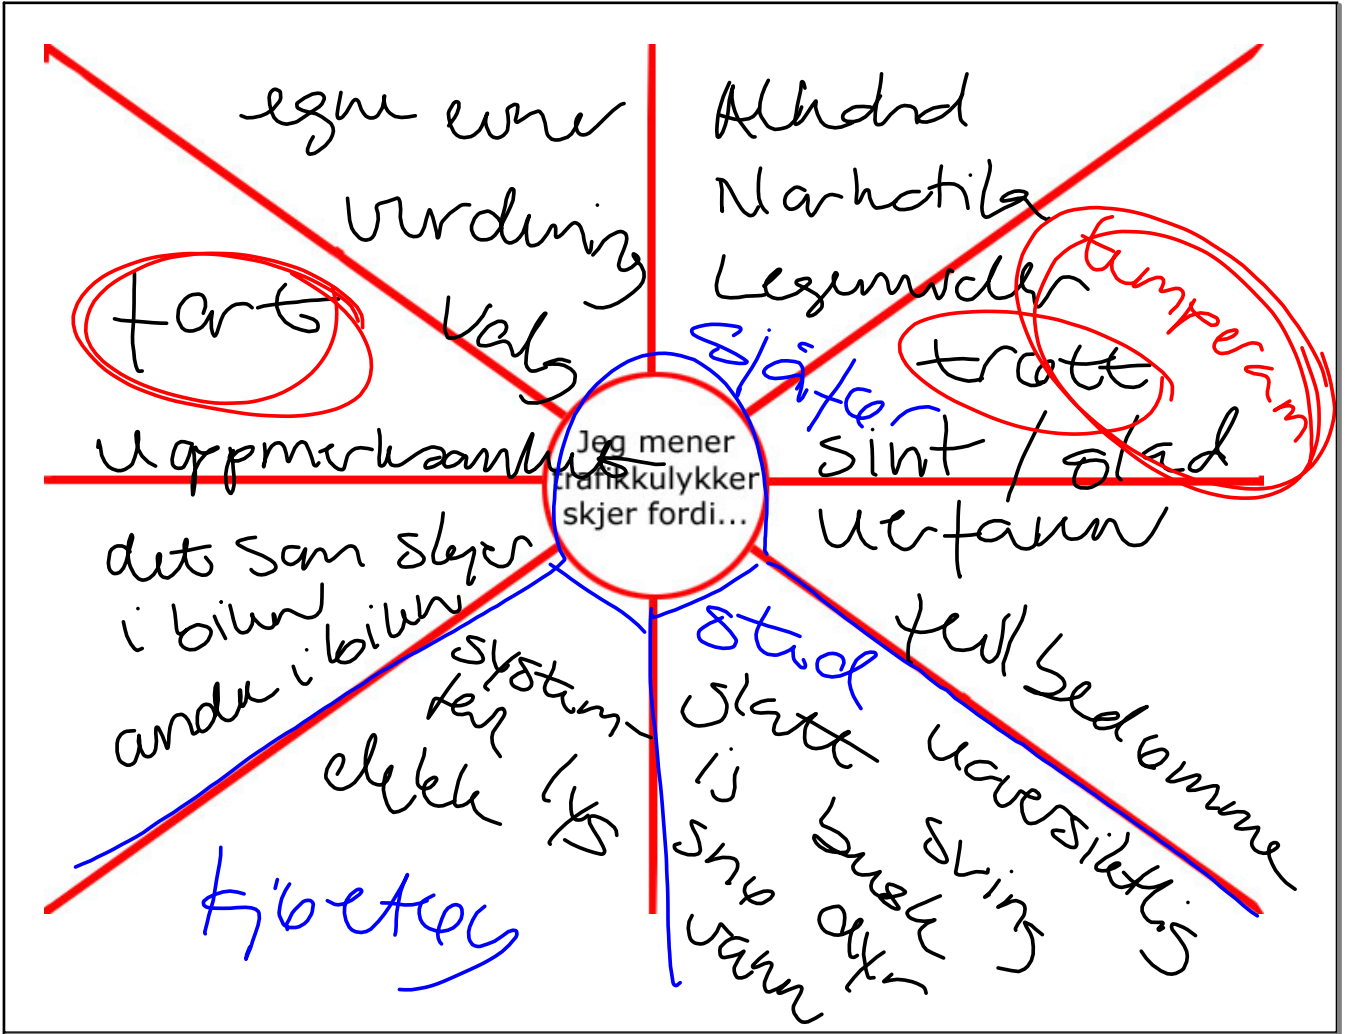 egne evner
vurdering
Valg
fart
Uoppmerksomhet
Alkohol
Narkotika
Legemidler
temperam
trøtt
sjåfør
sint / glad
uerfaren
Jeg mener
trafikkulykker
skjer fordi...
det som skjer
i bilen
andre i bilen
system-
feil
dekk
lys
kjøretøy
sted
glatt
is
snø
vann
feilbedømme
uoversiktlig
sving
busk
dyr